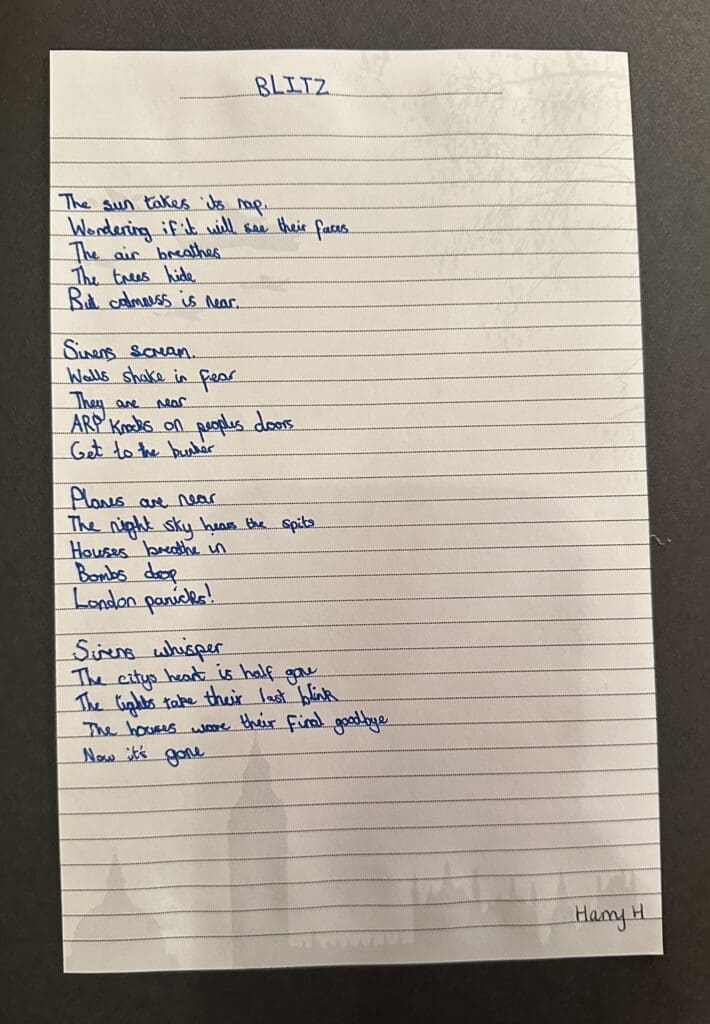 BLITZ
The sun takes its nap.
Wondering if it will see their faces
The air breathes
The trees hide
But calmness is near.
Sirens scream.
Walls shake in fear
They are near
ARP knocks on peoples doors
Get to the bunker
Planes are near
The night sky hears the spits
Houses breathe in
Bombs drop
London panicks!
Sirens whisper
The citys heart is half gone
The lights take their last blink
The houses wave their final goodbye
Now it's gone
Harry H